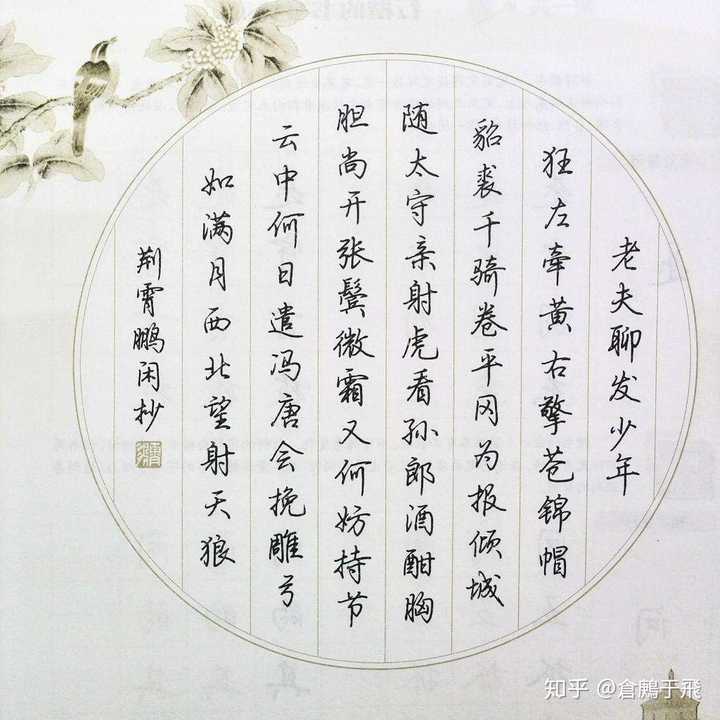 老夫聊发少年
狂左牵黄右擎苍锦帽
貂裘千骑卷平冈为报倾城
随太守亲射虎看孙郎酒酣胸
胆尚开张鬓微霜又何妨持节
云中何日遣冯唐会挽雕弓
如满月西北望射天狼
荆霄鹏闲抄
知乎 @倉鷉于飛